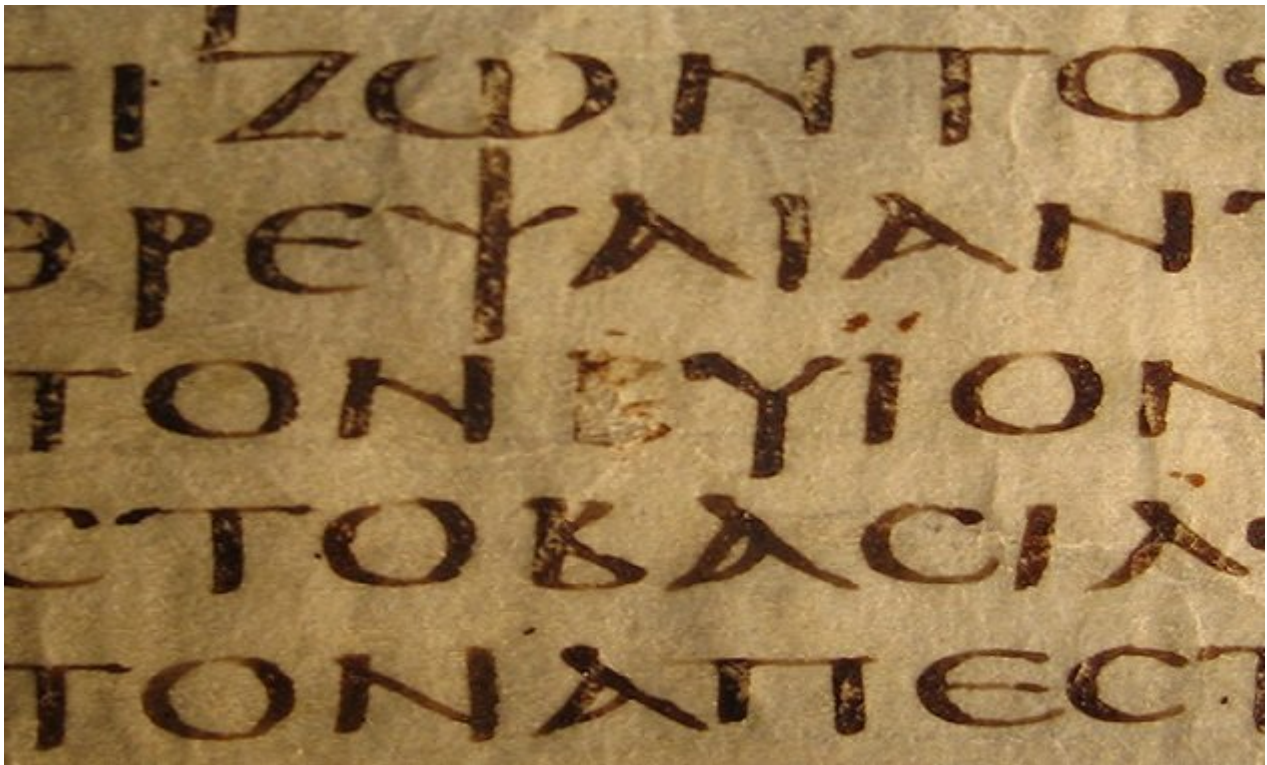 ΤΙΖΩΝΤΟ
ΘΡΕΨΑΙΑΝ
ΤΟΝ ΥΪΟΝ
ϹΤΟΒΑϹΙΛ
ΤΟΝΑΠΕϹΤ